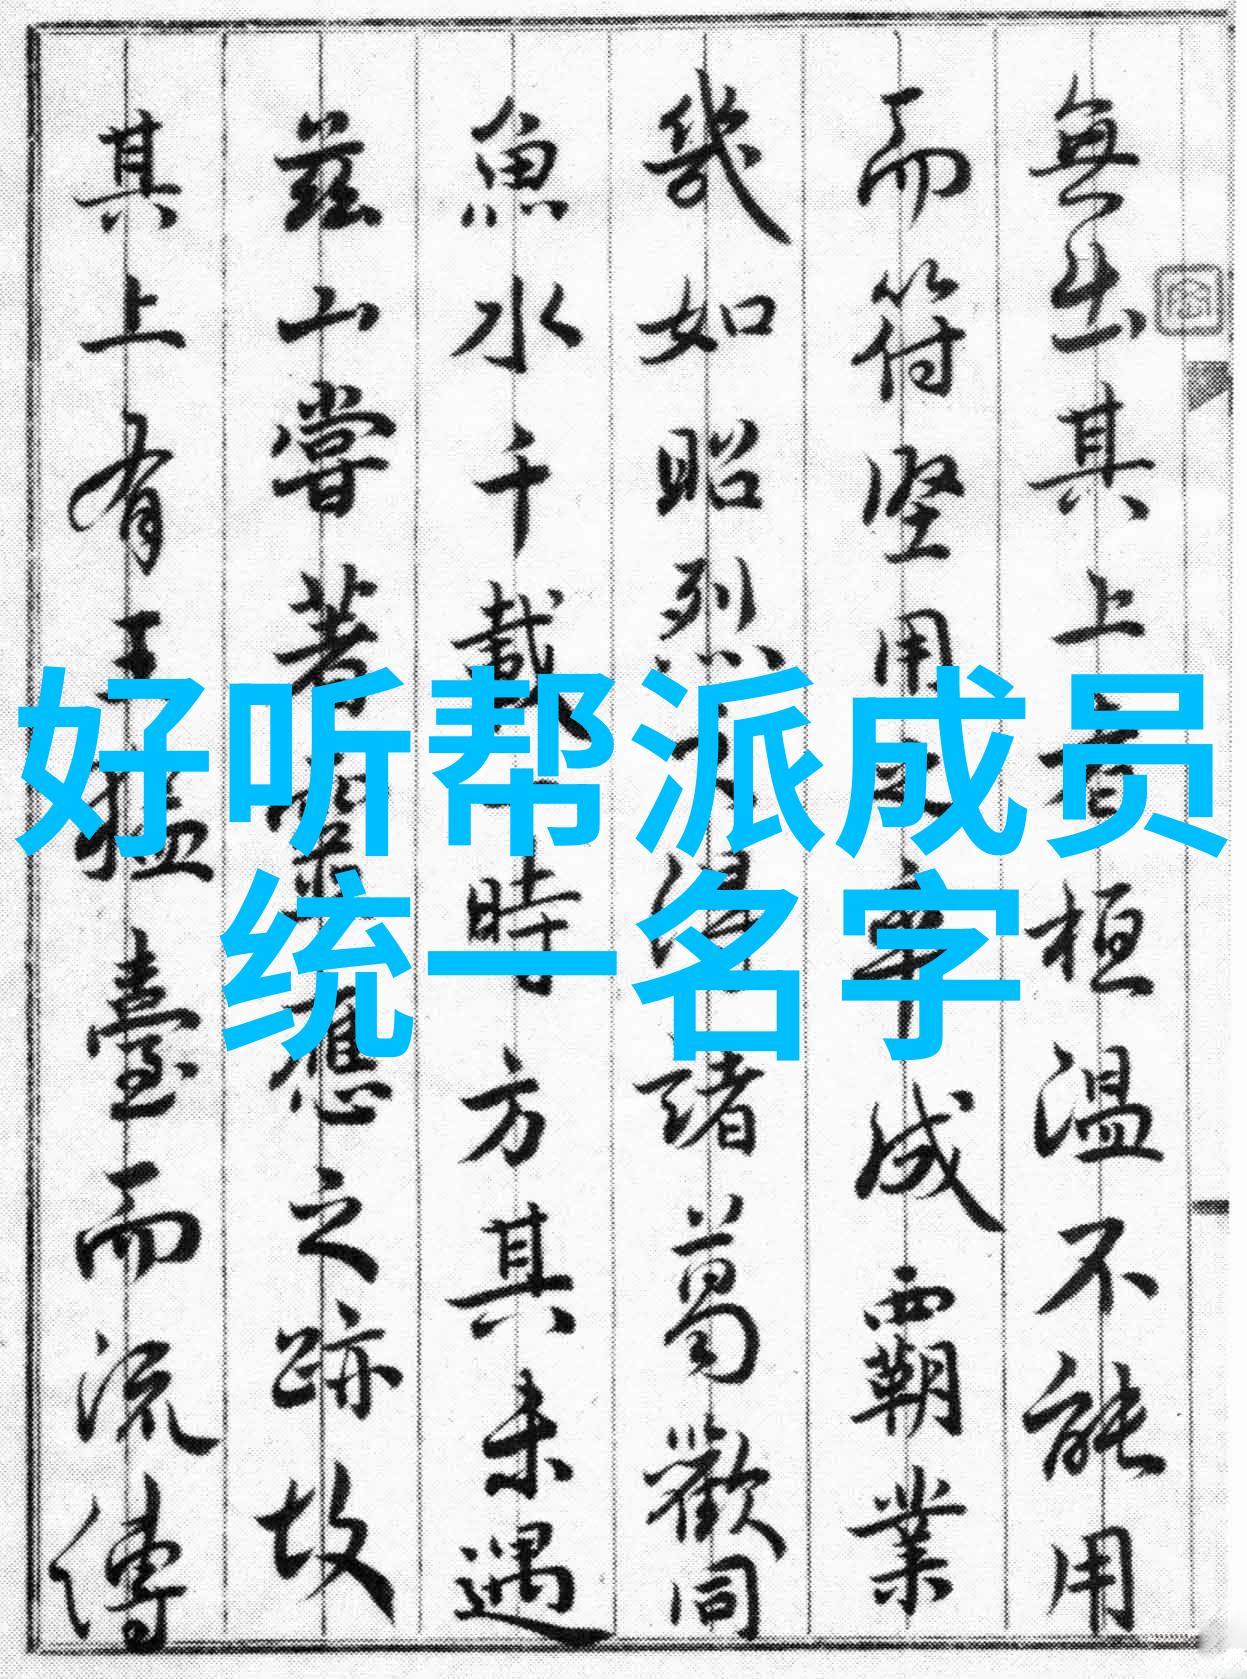 好听帮派成员
统一名字
無出其上者桓温不能用
而符堅用之卒成霸業
幾如昭烈之得諸葛歡同
魚水千載一時方其未遇
茲山嘗著靈應之跡故
其上有王猛臺而流傳